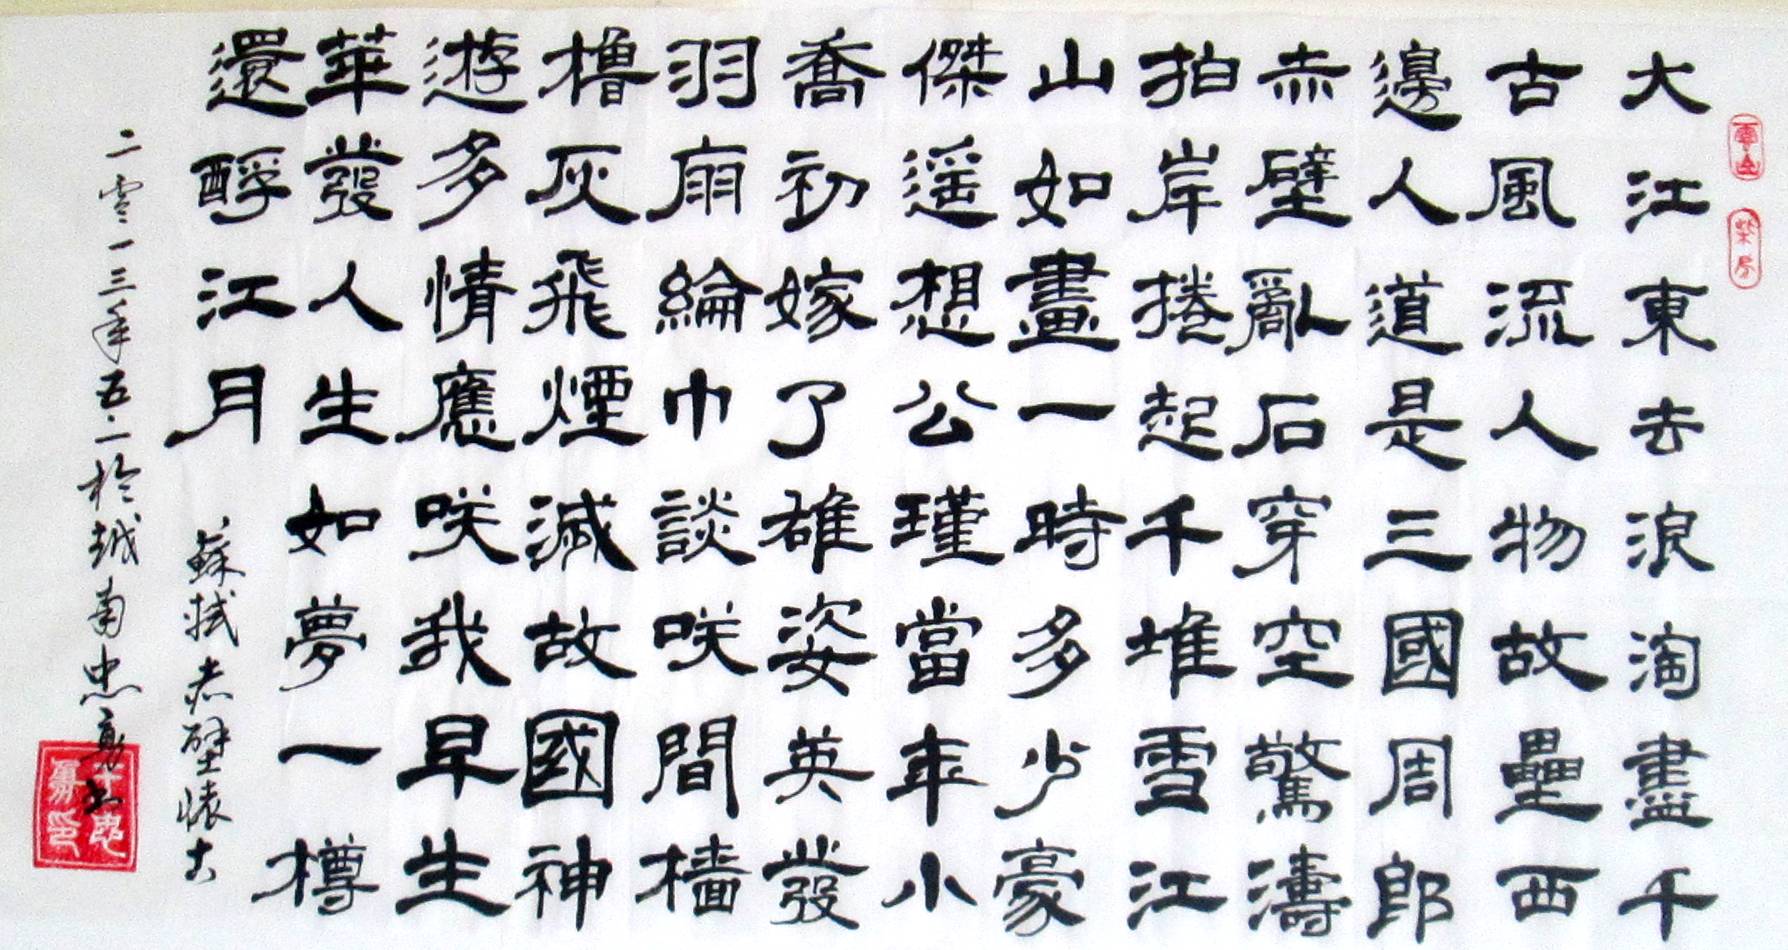 大江東去浪淘盡千
古風流人物故壘西
邊人道是三國周郎
赤壁亂石穿空驚濤
拍岸捲起千堆雪江
山如畫一時多少豪
傑遥想公瑾當年小
喬初嫁了雄姿英發
羽扇綸巾談咲間檣
櫓灰飛煙滅故國神
遊多情應咲我早生
華發人生如夢一樽
還酹江月
蘇軾赤壁懷古
二零一三年五.一於越南忠勇書